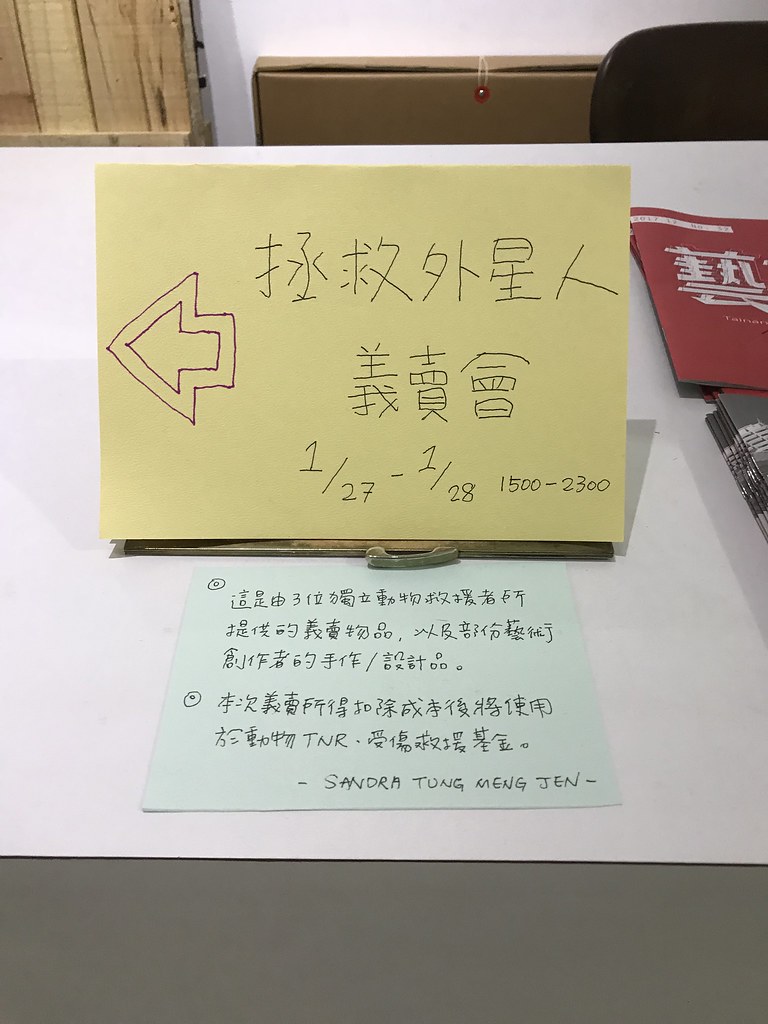 拯救外星人
義賣會
1/27 - 1/28 1500-2300
◎ 這是由3位獨立動物救援者所
提供的義賣物品, 以及部份藝術
創作者的手作/設計品。
◎ 本次義賣所得扣除成本後將使用
於動物TNR、受傷救援基金。
- SANDRA TUNG MENG JEN -
藝
Tainan